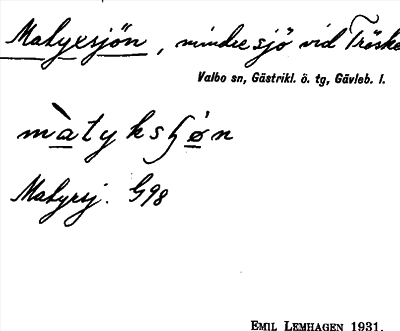 Matyxsjön, mindre sjö vid Tröske
Valbo sn, Gästrikl. ö. tg, Gävleb. l.
màtyksʃö̀n
Matyxsj. G98
EMIL LEMHAGEN 1931.